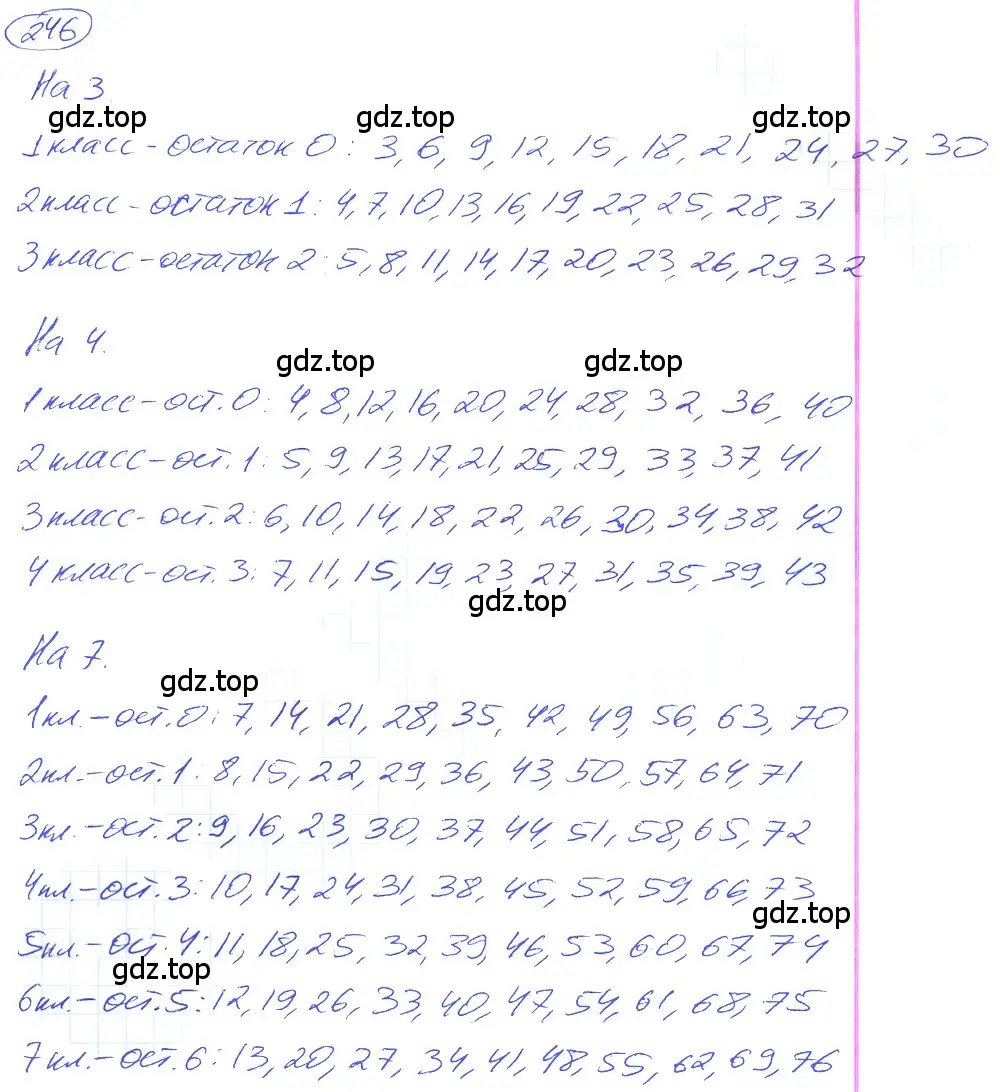 246
На 3
gdz.top gdz.top gdz.top
1 класс - остаток 0: 3, 6, 9, 12, 15, 18, 21, 24, 27, 30
2 класс - остаток 1: 4, 7, 10, 13, 16, 19, 22, 25, 28, 31
3 класс - остаток 2: 5, 8, 11, 14, 17, 20, 23, 26, 29, 32
На 4.
gdz.top gdz.top
1 класс - ост. 0: 4, 8, 12, 16, 20, 24, 28, 32, 36, 40
2 класс - ост. 1: 5, 9, 13, 17, 21, 25, 29, 33, 37, 41
3 класс - ост. 2: 6, 10, 14, 18, 22, 26, 30, 34, 38, 42
4 класс - ост. 3: 7, 11, 15, 19, 23, 27, 31, 35, 39, 43
gdz.top
На 7.
gdz.top
1 кл. - ост. 0: 7, 14, 21, 28, 35, 42, 49, 56, 63, 70
2 кл. - ост. 1: 8, 15, 22, 29, 36, 43, 50, 57, 64, 71
3 кл. - ост. 2: 9, 16, 23, 30, 37, 44, 51, 58, 65, 72
4 кл. - ост. 3: 10, 17, 24, 31, 38, 45, 52, 59, 66, 73
gdz.top
5 кл. - ост. 4: 11, 18, 25, 32, 39, 46, 53, 60, 67, 74
gdz.top
6 кл. - ост. 5: 12, 19, 26, 33, 40, 47, 54, 61, 68, 75
7 кл. - ост. 6: 13, 20, 27, 34, 41, 48, 55, 62, 69, 76